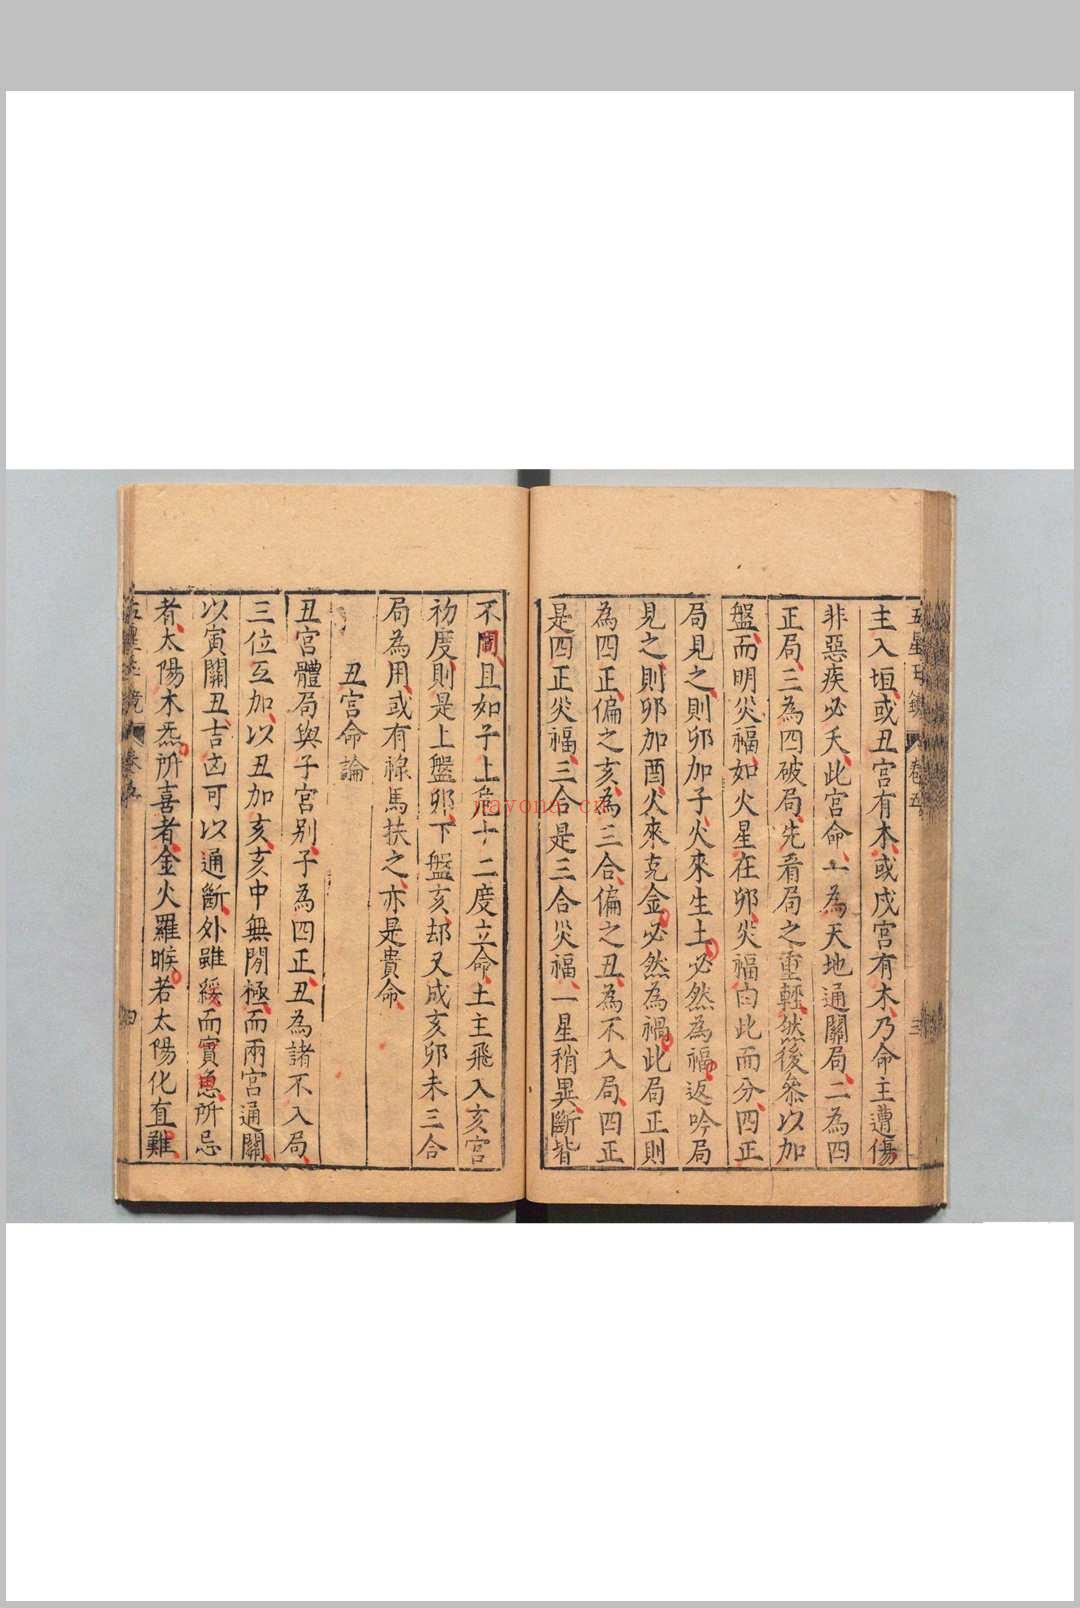 五星玉鏡 卷五 三
主入垣或丑宮有木或戌宮有木乃命主遭傷
非惡疾必夭此宮命一為天地通關局二為四
正局三為四破局先看局之重輕然後參以加
盤而明災福如火星在卯災福由此而分四正
局見之則卯加子火來生土必然為福返吟局
見之則卯加酉火來克金必然為禍此局正則
為四正偏之亥為三合偏之丑為不入局四正
是四正災福三合是三合災福一星稍異斷皆
不同且如子上危十二度立命土主飛入亥宮
初度則是上盤卯下盤亥却又成亥卯未三合
局為用或有祿馬扶之亦是貴命
丑宮命論
丑宮體局與子宮別子為四正丑為諸不入局
三位互加以丑加亥亥中無閒極而兩宮通關
以寅關丑吉凶可以通斷外雖緩而實急所忌
者太陽木炁所喜者金火羅睺若太陽化直難
五星玉鏡 卷五 四
nayona.cn